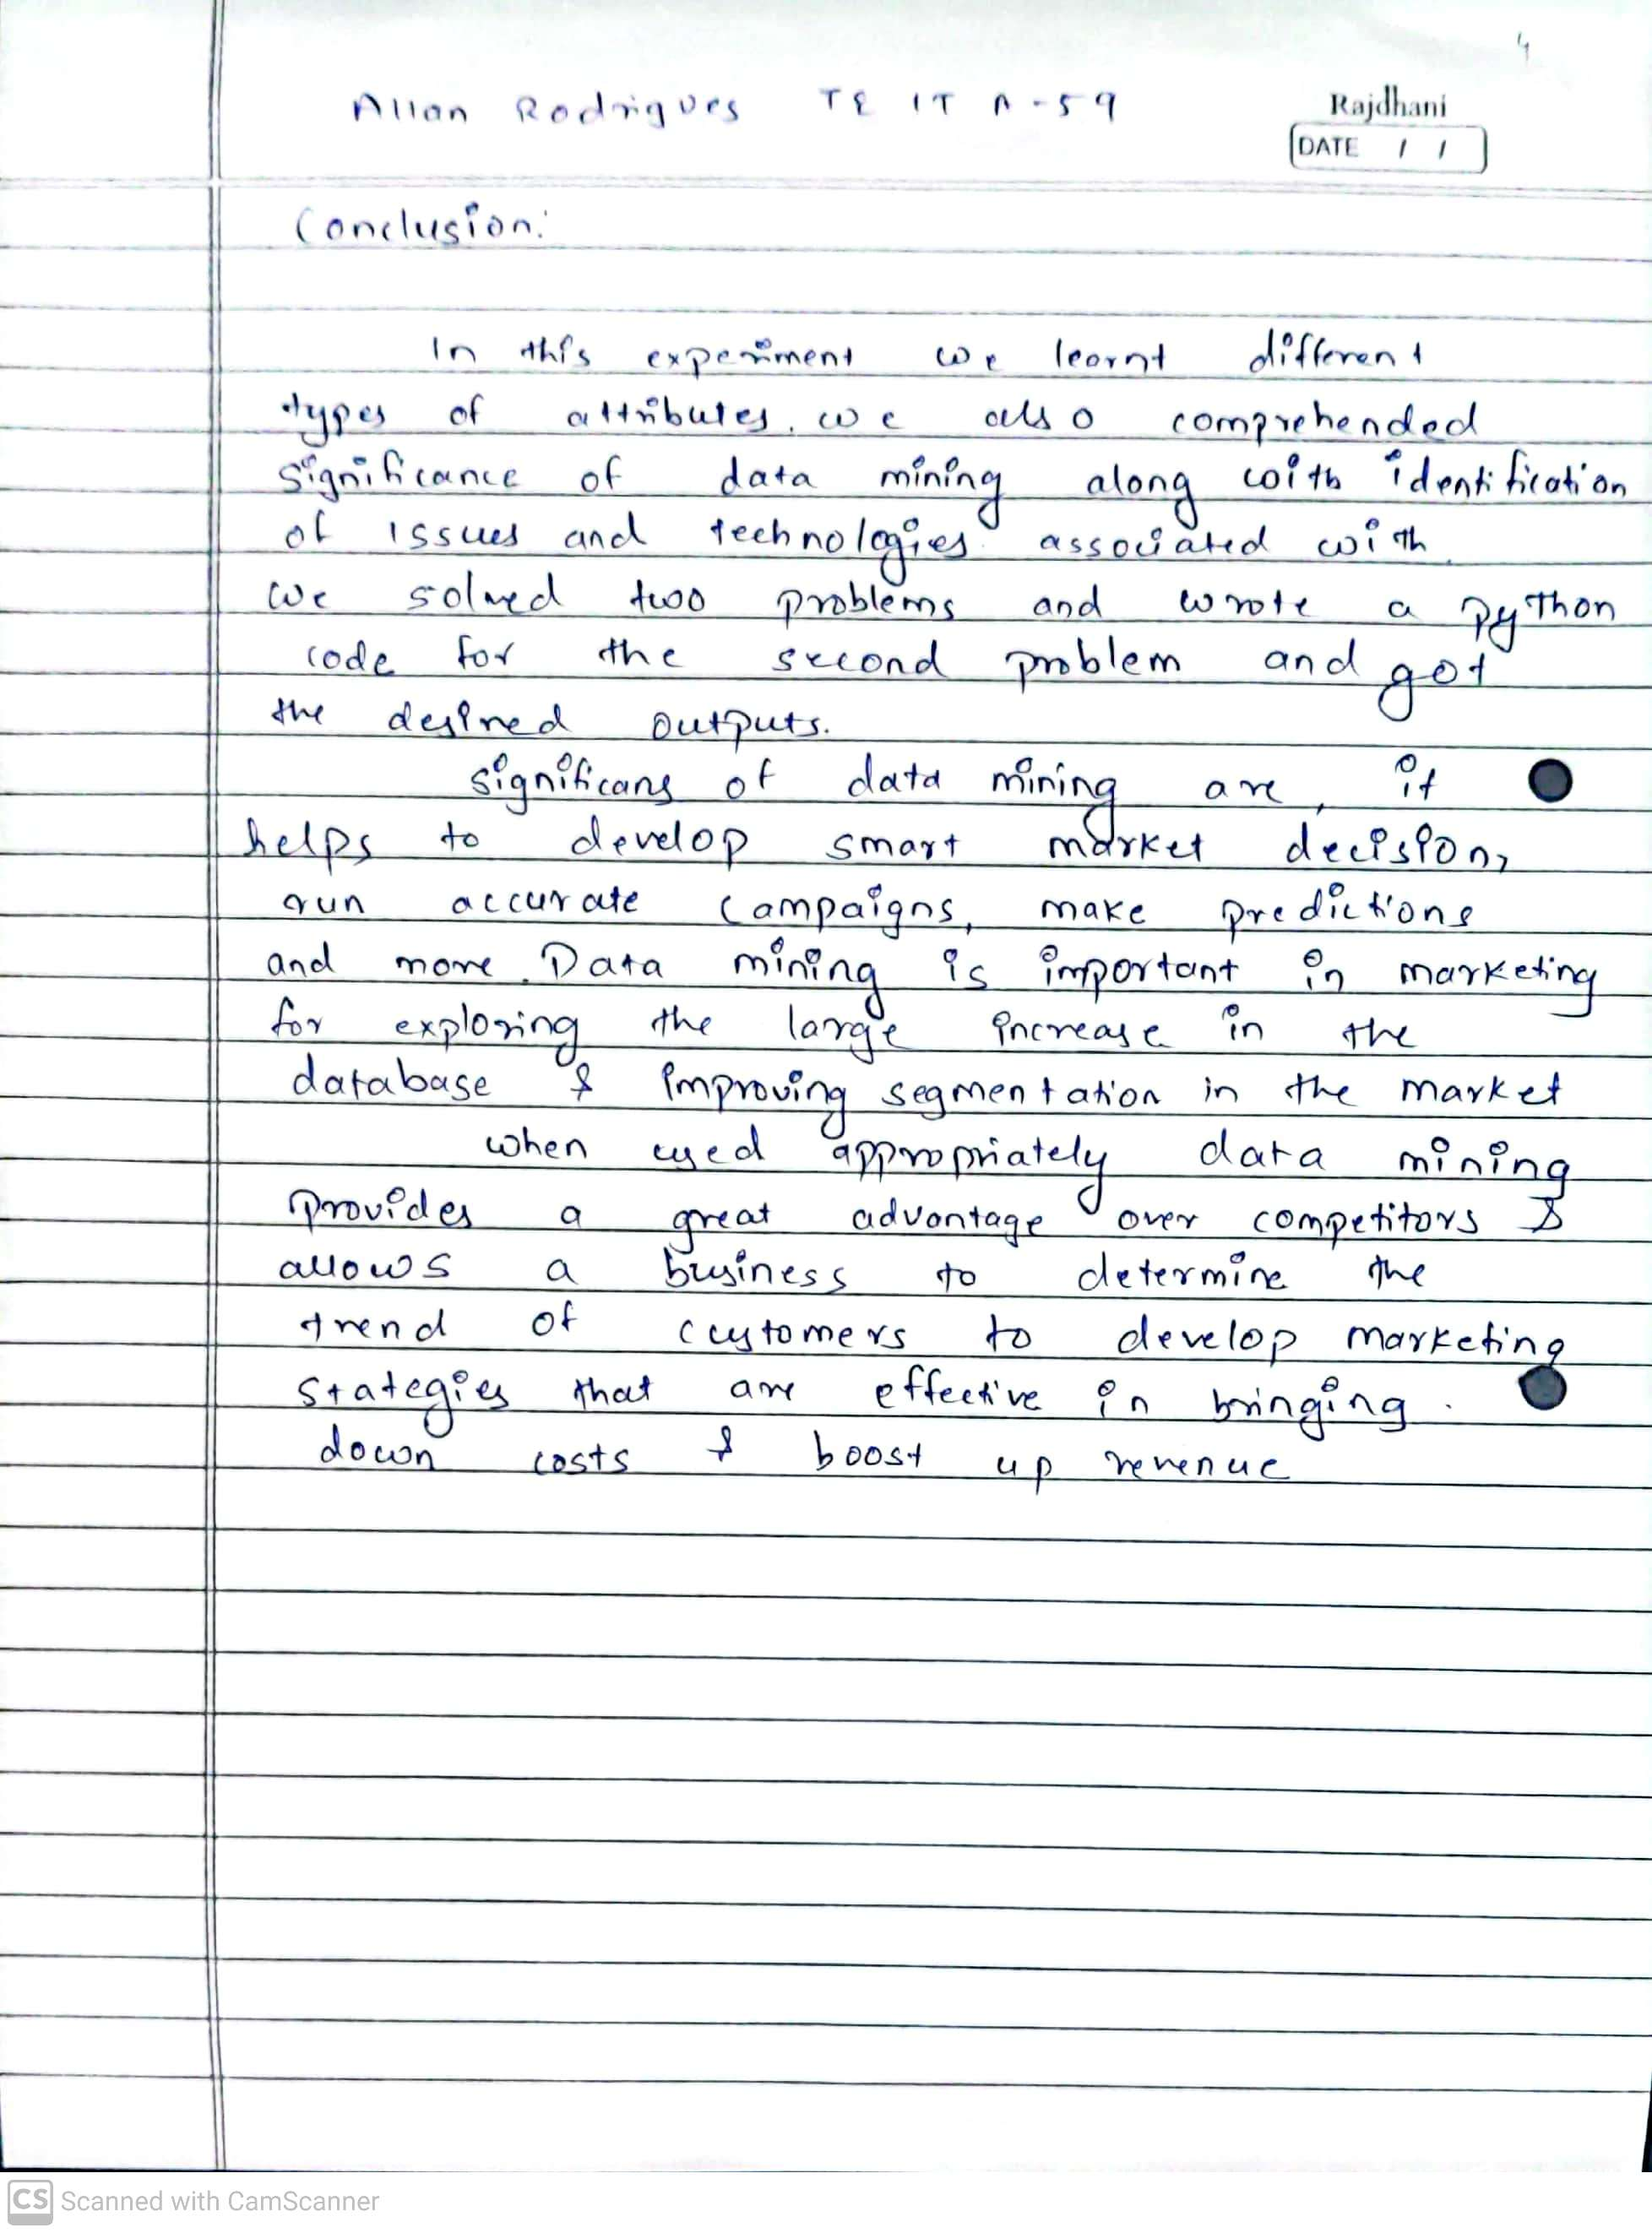 4
Allan Rodrigues TE IT A-59
Rajdhani
DATE / /
Conclusion:
In this experiment we learnt different
types of attributes. we also comprehended
significance of data mining along with identification
of issues and technologies associated with
we solved two problems and wrote a python
code for the second problem and got
the desired outputs.
significans of data mining are, it
helps to develop smart market decision,
run accurate campaigns, make predictions
and more. Data mining is important in marketing
for exploring the large increase in the
database & improving segmentation in the market
when used appropriately data mining
provides a great advantage over competitors &
allows a business to determine the
trend of customers to develop marketing
stategies that are effective in bringing
down costs & boost up revenue
CS Scanned with CamScanner